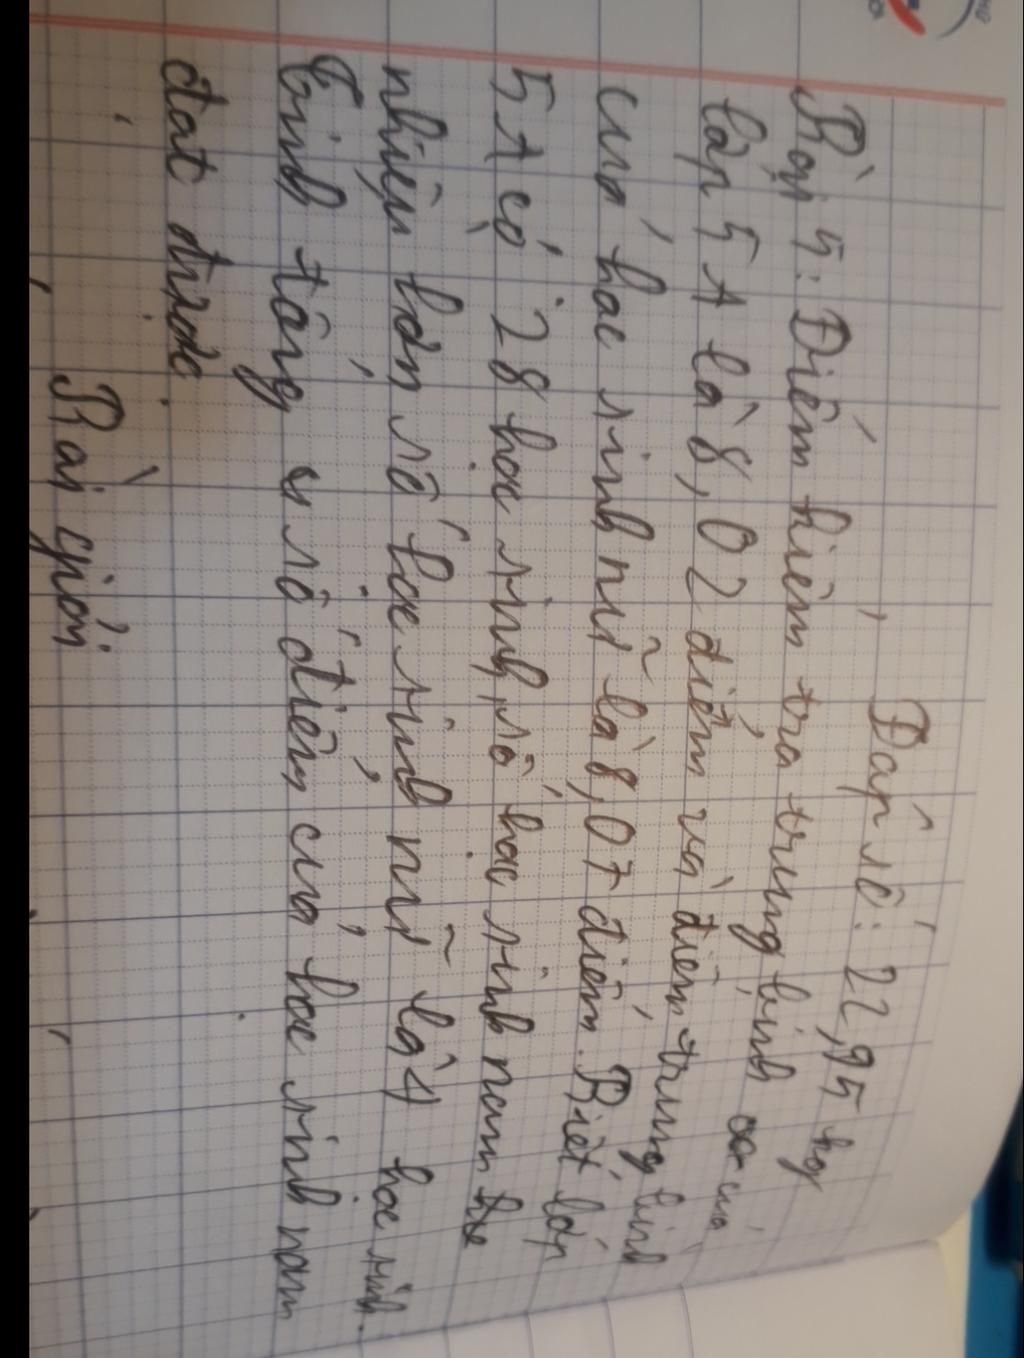 Đáp số: 22,95 kg
Bài 5: Điểm kiểm tra trung bình của
lớp 5A là 8,02 điểm và điểm trung bình
của học sinh nữ là 8,07 điểm. Biết lớp
5A có 28 học sinh, số học sinh nam
nhiều hơn số học sinh nữ là 4 học sinh.
Tính tổng số điểm của học sinh nam
đạt được.
Bài giải